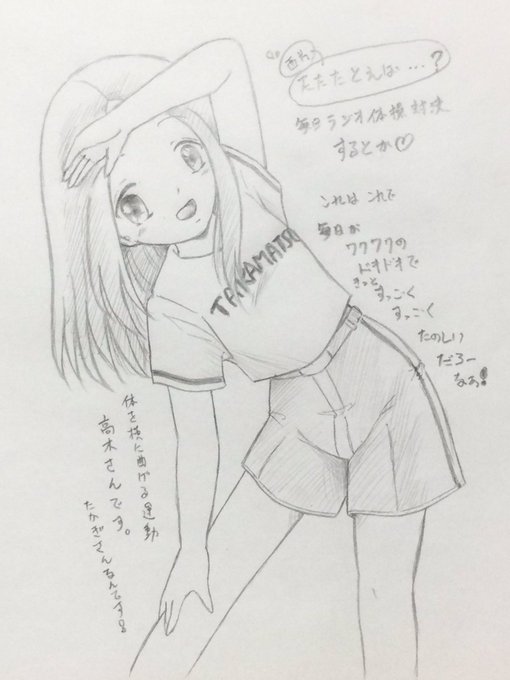 西片
たたたとえば…?
毎日ラジオ体操対決
するとか♡
これはこれで
毎日が
ワクワクの
ドキドキで
きっと
すっごく
すっごく
たのしい
だろー
なぁ!
TAKAMATSU
体を横に曲げる運動
高木さんです。
たかぎさんなんです!